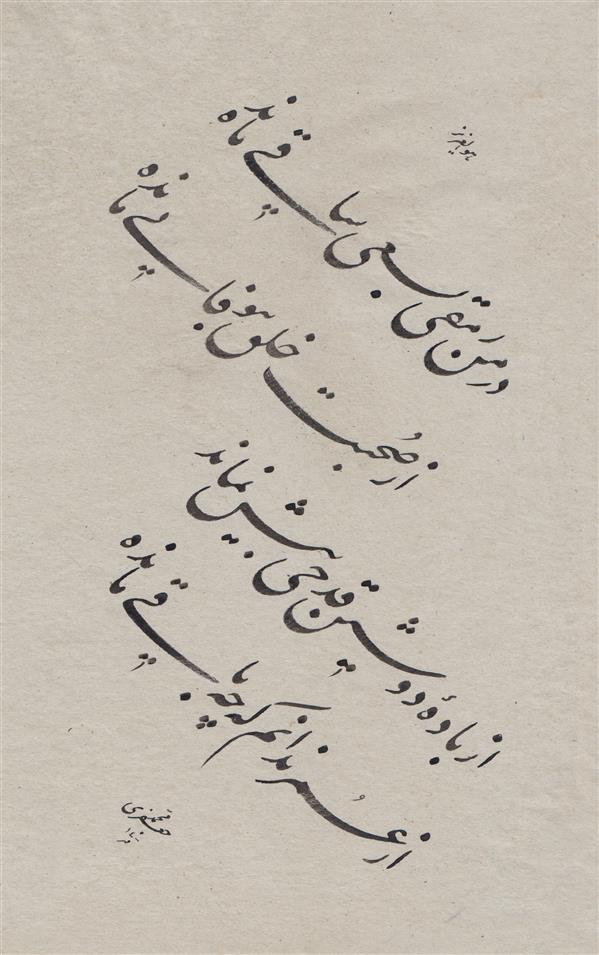 هوالعزیز
در من رمقی بسعی ساقی مانده
از صحبت خلق بیوفاقی مانده
از بادهٔ دوشین قدحی بیش نماند
از عُمر ندانم که چه باقی مانده